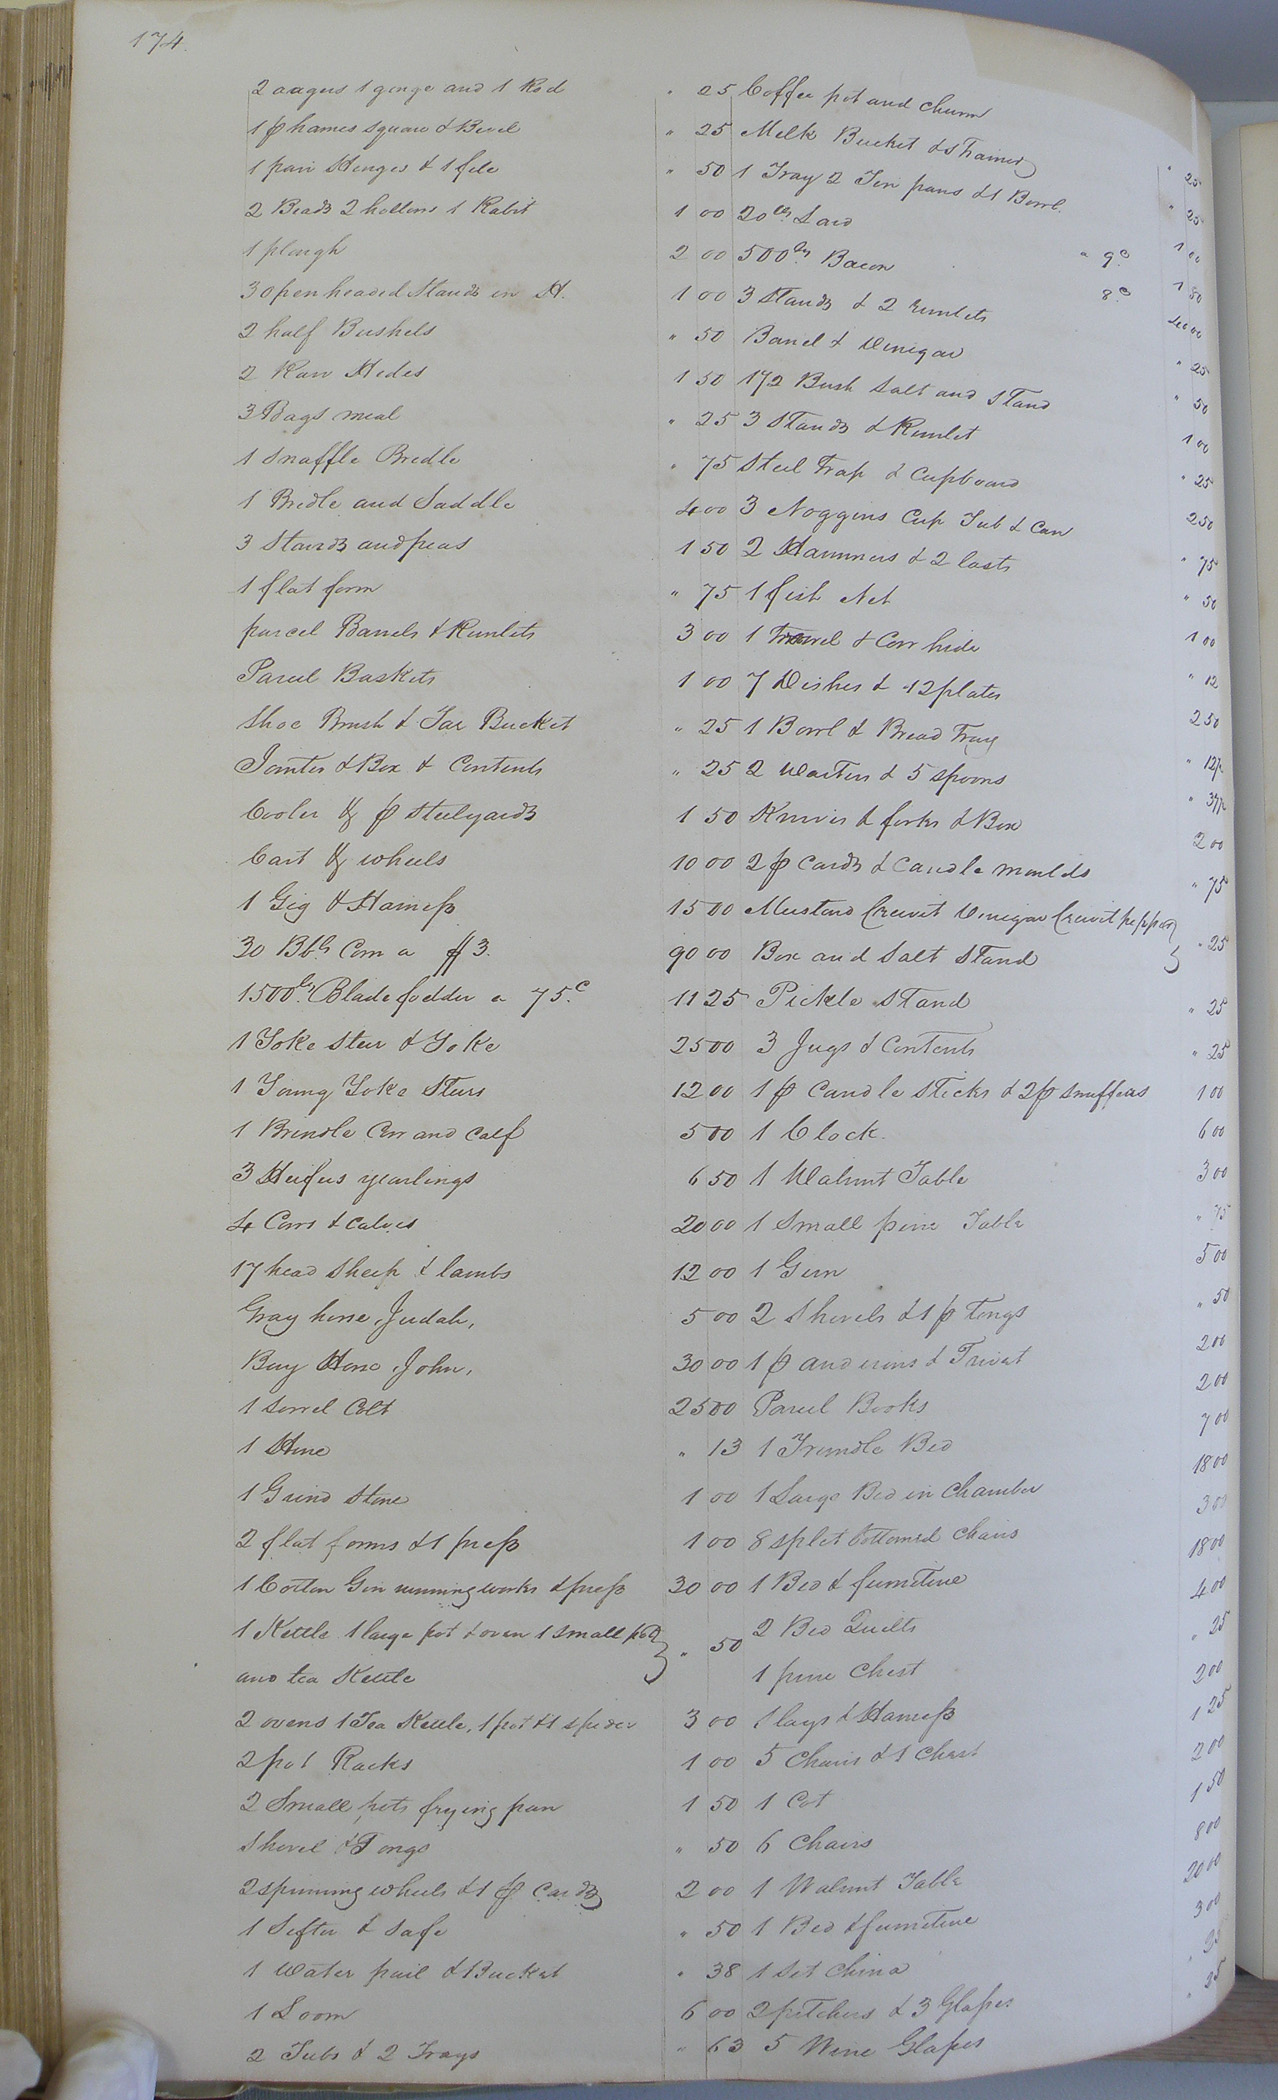 174.
2 augers 1 gouge and 1 Rod " 25
1 p hames square & Bevel " 25
1 pair Hinges & 1 file " 50
2 Beads 2 hollows 1 Rabit 1 00
1 plough 2 00
3 open headed Stands in H. 1 00
2 half Bushels " 50
2 Raw Hides 1 50
3 Bags meal " 25
1 Snaffle Bridle " 75
1 Bridle and Saddle 4 00
3 Stands and peas 1 50
1 flat form " 75
parcel Barrels & Runlets 3 00
Parcel Baskets 1 00
Shoe Brush & Tar Bucket " 25
Jointer & Box & Contents " 25
Cooler & p Steelyards 1 50
Cart & wheels 10 00
1 Gig & Harness 15 00
30 Bbls Corn a $3. 90 00
1500 lbs Blade fodder a 75.c 11 25
1 Yoke Steer & Yoke 25 00
1 Young Yoke Steers 12 00
1 Brindle Cow and Calf 5 00
3 Heifers yearlings 6 50
4 Cows & calves 20 00
17 head Sheep & lambs 12 00
Gray horse, Judah, 5 00
Bay Horse, John, 30 00
1 Sorrel Colt 25 00
1 Hone " 13
1 Grind Stone 1 00
2 flat forms & 1 press 1 00
1 Cotton Gin running works & press 30 00
1 Kettle 1 large pot & oven 1 small pot
and tea Kettle } " 50
2 ovens 1 Tea Kettle, 1 pot & 1 spider 3 00
2 pot Racks 1 00
2 Small pots frying pan 1 50
Shovel & Tongs " 50
2 spinning wheels & 1 p Cards 2 00
1 Sifter & Safe " 50
1 Water pail & Bucket " 38
1 Loom 6 00
2 Tubs & 2 Trays " 63
Coffee pot and churn " 25
Milk Bucket & Strainer " 25
1 Tray 2 Tin pans & 1 Bowl. 1 00
20 lbs Lard " 9c 1 80
500 lbs Bacon 8c 40 00
3 Stands & 2 runlets " 25
Barrel & Vinegar " 50
1 1/2 Bush Salt and Stand 1 00
3 Stands & Runlet " 25
Steel Trap & Cupboard 2 50
3 Noggins Cup Tub & Can " 75
2 Hammers & 2 lasts " 50
1 fish Net 1 00
1 Trowel & Cow hide " 12
7 Dishes & 12 plates 2 50
1 Bowl & Bread Tray " 12 1/2
2 Waiters & 5 spoons " 37 1/2
Knives & forks & Box 2 00
2 p Cards & Candle moulds " 75
Mustard Crewit Vinegar Crewit pepper
Box and Salt Stand } " 25
Pickle Stand " 25
3 Jugs & Contents " 25
1 p Candle Sticks & 2 p Snuffers 1 00
1 Clock. 6 00
1 Walnut Table 3 00
1 Small pine Table " 75
1 Gun 5 00
2 Shovels & 1 p Tongs " 50
1 p andirons & Trivet 2 00
Parcel Books 2 00
1 Trundle Bed 7 00
1 Large Bed in Chamber 18 00
8 split bottomed Chairs 3 00
1 Bed & furniture 18 00
2 Bed Quilts 4 00
1 pine Chest " 25
Slays & Harness 2 00
5 Chairs & 1 Chest 1 25
1 Cot 2 00
6 Chairs 1 50
1 Walnut Table 8 00
1 Bed & furniture 20 00
1 Set China 3 00
2 pitchers & 3 Glasses " 25
5 Wine Glasses " 25